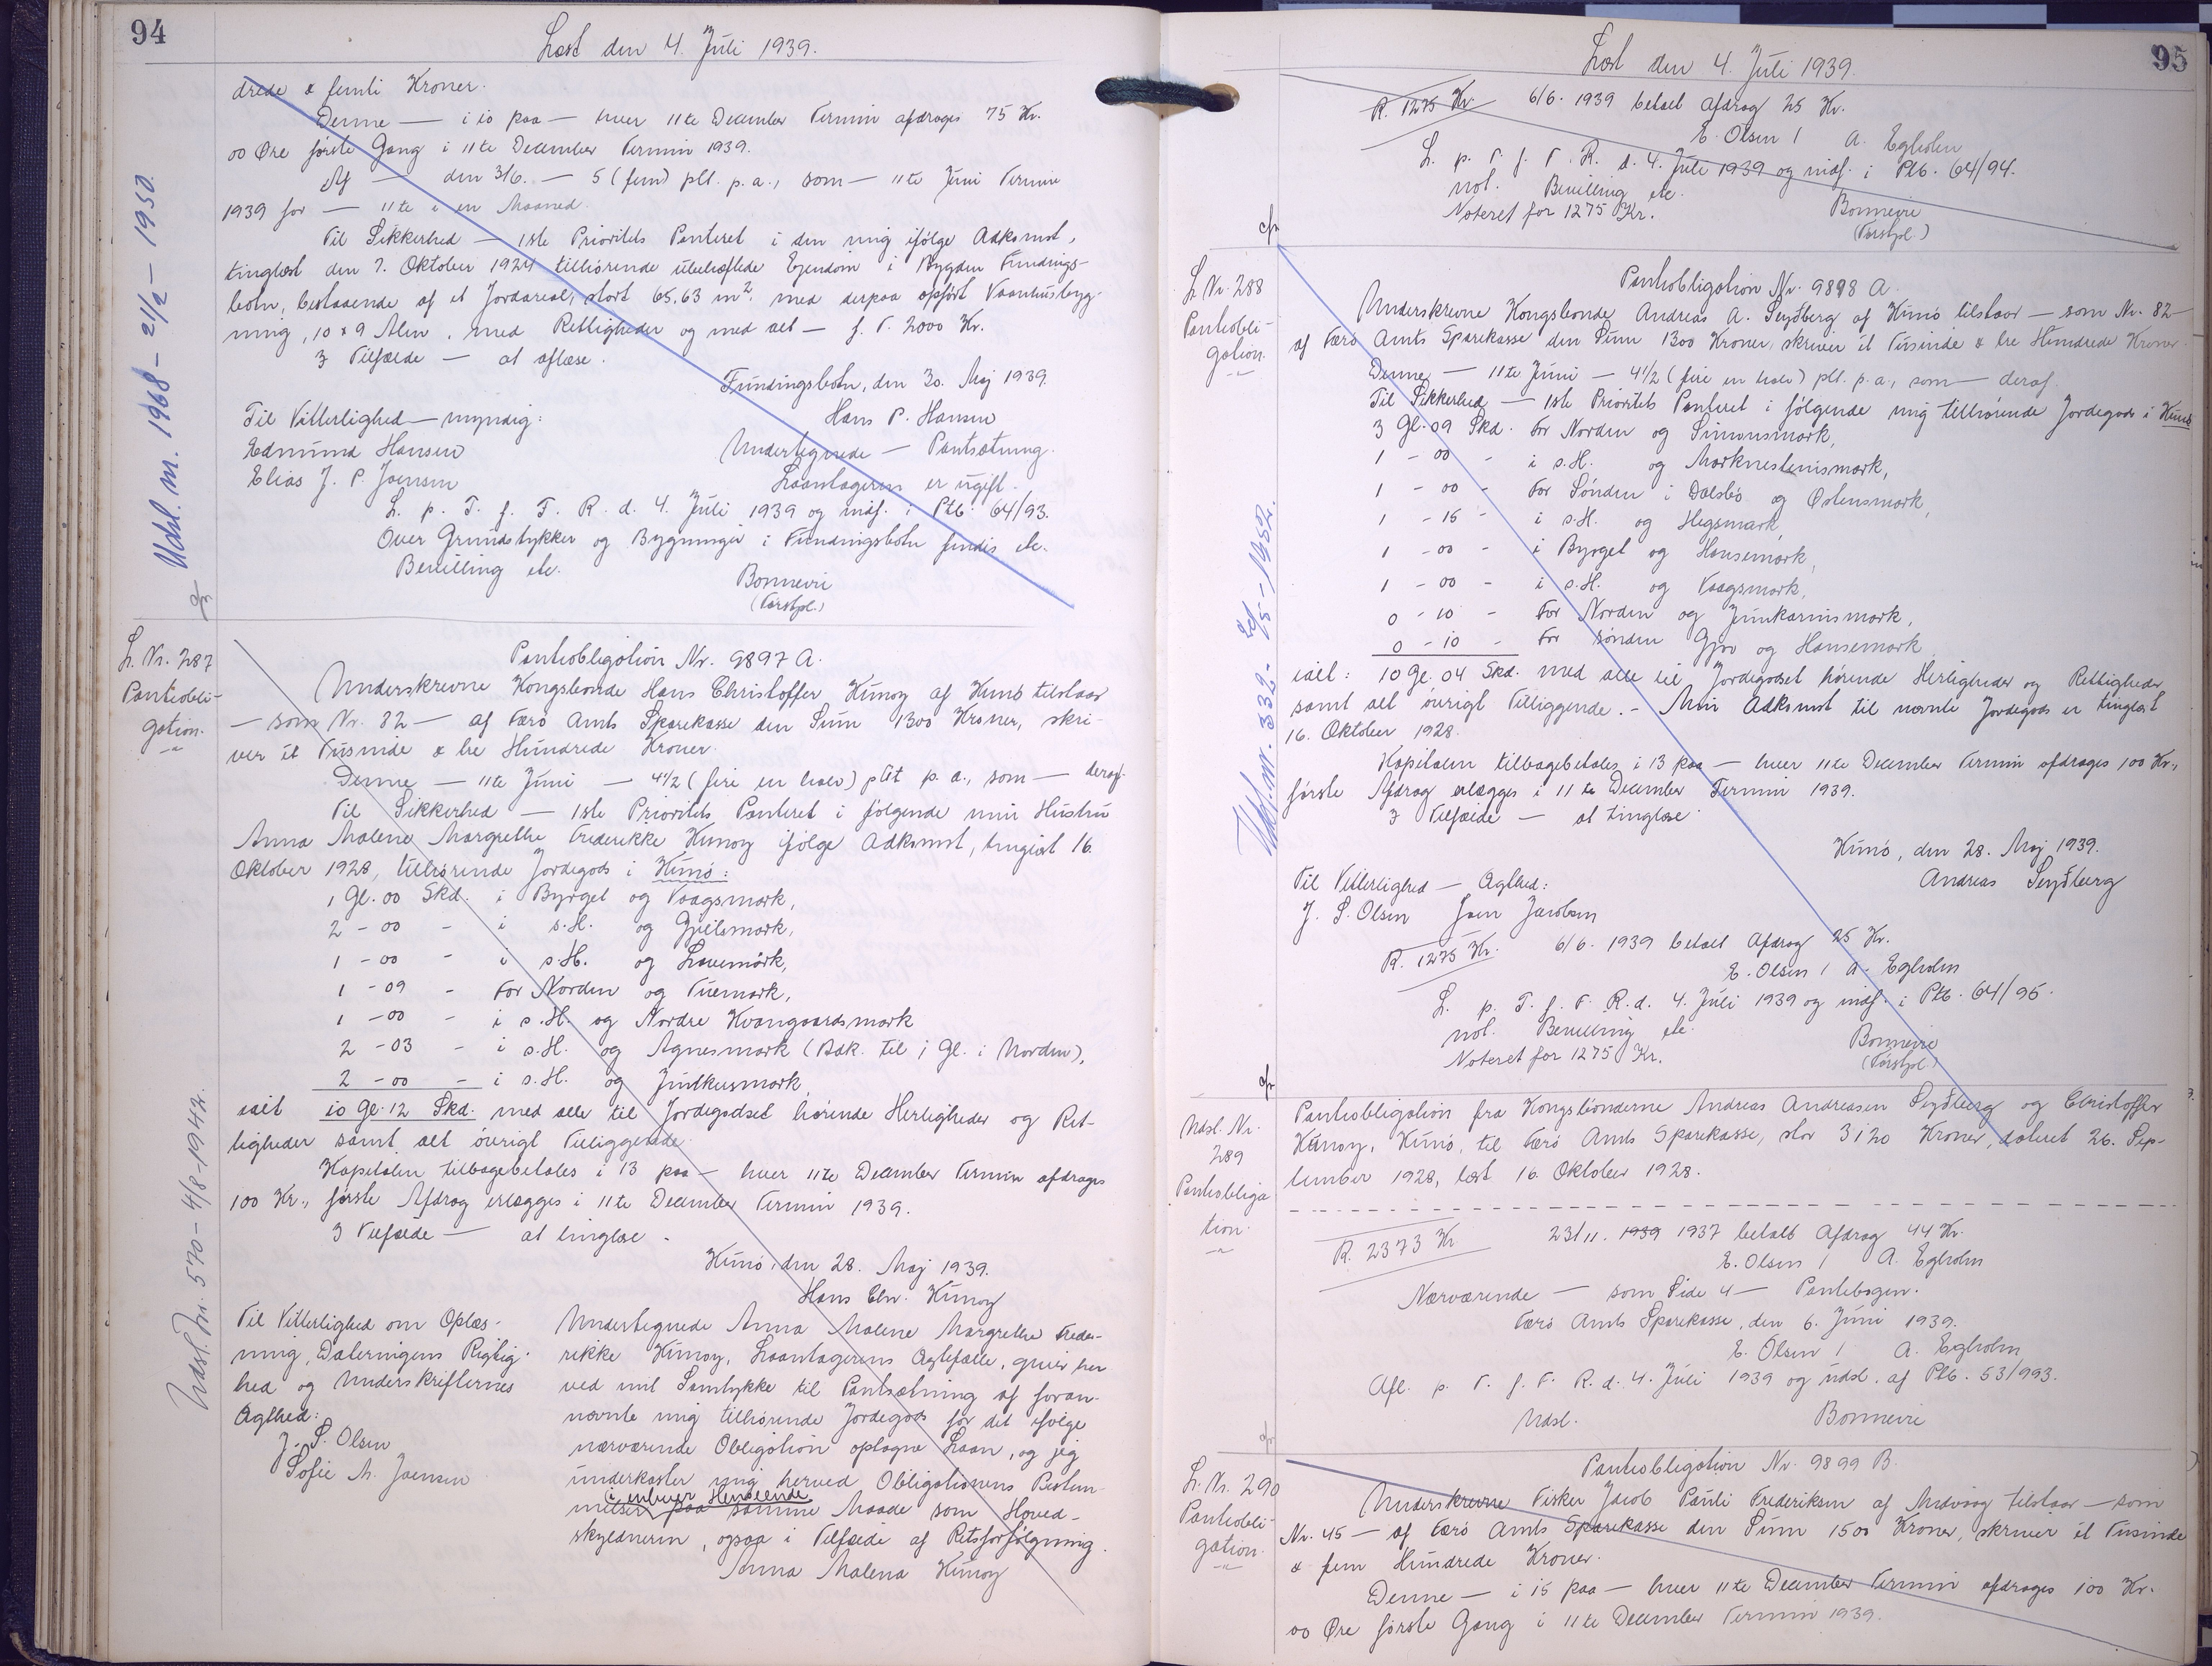 94
Læst den 4. Juli 1939.
drede & femti Kroner.
Denne — i 10 paa — hver 11te December Termin afdrages 75 Kr.
00 Øre første Gang i 11te December Termin 1939.
Af — den 3/6. — 5 (fem) pct. p. a., som — 11te Juni Termin
1939 for — 11te i en Maaned.
Til Sikkerhed — 1ste Prioritets Panteret i den mig ifølge Adkomst,
tinglæst den 7. Oktober 1924 tilhørende ubehæftede Ejendom i Bygden Fundings-
botn, bestaaende af et Jordareal, stort 65,63 m². med derpaa opført Vaanhusbyg-
ning, 10 x 9 Alen, med Rettigheder og med alt — f. T. 2000 Kr.
I Tilfælde — at aflæse.
Fundingsbotn, den 30. Maj 1939.
Til Vitterlighed — myndig:
Hans P. Hansen
Edmund Hansen
Undertegnede — Pantsætning.
Elias J. P. Joensen
Laantageren er ugift.
L. p. T. f. F. R. d. 4. Juli 1939 og indf. i Ptb. 64/93.
Over Grundstykker og Bygninger i Fundingsbotn findes etc.
Bevilling etc.
Bonnevie
(Forstpl.)
Udsl. m. 1968 - 21/2 - 1950.
cfr
L. Nr. 287
Panteobli-
gation.
Panteobligation Nr. 9897 A.
Underskrevne Kongsbonde Hans Christoffer Kunoy af Kunø tilstaar
— som Nr. 82 — af Færø Amts Sparekasse den Sum 1300 Kroner, skri-
ver et Tusinde & tre Hundrede Kroner.
Denne — 11te Juni — 4½ (fire en halv) pct p. a., som — deraf.
Til Sikkerhed — 1ste Prioritets Panteret i følgende min Hustru
Anna Malene Margrethe Frederikke Kunoy ifølge Adkomst, tinglæst 16.
Oktober 1928, tilhørende Jordegods i Kunø:
1 Gl. 00 Skd. i Byrget og Vaagsmark,
2 - 00 - i s.H. og Gjeilsmark,
1 - 00 - i s.H. og Lovemørk,
1 - 09 - For Norden og Tuemark,
1 - 00 - i s.H. og Nordre Kvangaardsmark
2 - 03 - i s.H. og Agnesmark (Adk. til 1 Gl. i Norden),
2 - 00 - i s.H. og Jutkusmark
ialt 10 Gl. 12 Skd. med alle til Jordegodset hørende Herligheder og Ret-
tigheder samt alt øvrigt Tilliggende.
Kapitalen tilbagebetales i 13 paa — hver 11te December Termin afdrages
100 Kr., første Afdrag erlægges i 11te December Termin 1939.
I Tilfælde — at tinglæse.
Kunø, den 28. Maj 1939.
Hans Chr. Kunoy
Til Vitterlighed om Oplæs-
ning, Dateringens Rigtig-
hed og Underskrifternes
Ægthed:
J. S. Olsen
Sofie M. Joensen
Undertegnede Anna Malene Margrethe Frede-
rikke Kunoy, Laantagerens Ægtefælle, giver her
ved mit Samtykke til Pantsætning af foran-
nævnte mig tilhørende Jordegods for det ifølge
nærværende Obligation optagne Laan, og jeg
underkaster mig herved Obligationens Bestem-
i enhver Henseende
melser paa samme Maade som Hoved-
skyldneren, ogsaa i Tilfælde af Retsforfølgning.
Anna Malena Kunoy
Udsl. Nr. 570 - 4/8 - 1942.
95
Læst den 4. Juli 1939.
R. 1275 Kr. 6/6. 1939 betalt Afdrag 25 Kr.
E. Olsen / A. Egholm
L. p. T. f. F. R. d. 4. Juli 1939 og indf. i Ptb. 64/94.
not. Bevilling etc.
Noteret for 1275 Kr.
Bonnevie
(Forstpl.)
cfr
L. Nr. 288
Panteobli-
gation.
Panteobligation Nr. 9898 A.
Underskrevne Kongsbonde Andreas A. Seyðberg af Kunø tilstaar — som Nr. 82 —
af Færø Amts Sparekasse den Sum 1300 Kroner, skriver et Tusinde & tre Hundrede Kroner.
Denne — 11te Juni — 4½ (fire en halv) pct. p. a., som — deraf.
Til Sikkerhed — 1ste Prioritets Panteret i følgende mig tilhørende Jordegods i Kunø
3 Gl. 09 Skd. For Norden og Simunsmark,
1 - 00 - i s.H. og Marknestenismark,
1 - 00 - For Sønden i Dalsbø og Østensmark,
1 - 15 - i s.H. og Hegsmark,
1 - 00 - i Byrget og Hansemark,
1 - 00 - i s.H. og Vaagsmark,
0 - 10 - For Norden og Junkarnismark,
0 - 10 - For Sønden Gjov og Hansemark
ialt: 10 Gl. 04 Skd. med alle til Jordegodset hørende Herligheder og Rettigheder
samt alt øvrigt Tilliggende. - Min Adkomst til nævnte Jordegods er tinglæst
16. Oktober 1928.
Kapitalen tilbagebetales i 13 paa — hver 11te December Termin afdrages 100 Kr.,
første Afdrag erlægges i 11te December Termin 1939.
I Tilfælde — at tinglæse.
Kunø, den 28. Maj 1939.
Andreas Seyðberg
Til Vitterlighed — Ægthed:
J. S. Olsen Joen Jacobsen
R. 1275 Kr. 6/6. 1939 betalt Afdrag 25 Kr.
E. Olsen / A. Egholm
L. p. T. f. F. R. d. 4. Juli 1939 og indf. i Ptb. 64/95.
not. Bevilling etc.
Noteret for 1275 Kr.
Bonnevie
(Forstpl.)
Udsl. m. 332 - 15 - 1952.
cfr
Udsl. Nr.
289
Panteobliga
tion.
Panteobligation fra Kongsbønderne Andreas Andreasen Seyðberg og Christoffer
Kunoy, Kunø, til Færø Amts Sparekasse, stor 3120 Kroner, dateret 26. Sep-
tember 1928, læst 16. Oktober 1928.
R. 2373 Kr 23/11. 1939 1937 betalt Afdrag 44 Kr.
E. Olsen / A. Egholm
Nærværende — som Side 4 — Pantebogen.
Færø Amts Sparekasse, den 6. Juni 1939.
E. Olsen / A. Egholm
Afl. p. T. f. F. R. d. 4. Juli 1939 og udsl. af Ptb. 53/993.
Udsl. Bonnevie
cfr
L. Nr. 290
Panteobli-
gation.
Panteobligation Nr. 9899 B.
Underskrevne Fisker Jacob Pauli Frederiksen af Midvaag tilstaar — som
Nr. 45 — af Færø Amts Sparekasse den Sum 1500 Kroner, skriver et Tusinde
& fem Hundrede Kroner.
Denne — i 15 paa — hver 11te December Termin afdrages 100 Kr.
00 Øre første Gang i 11te December Termin 1939.